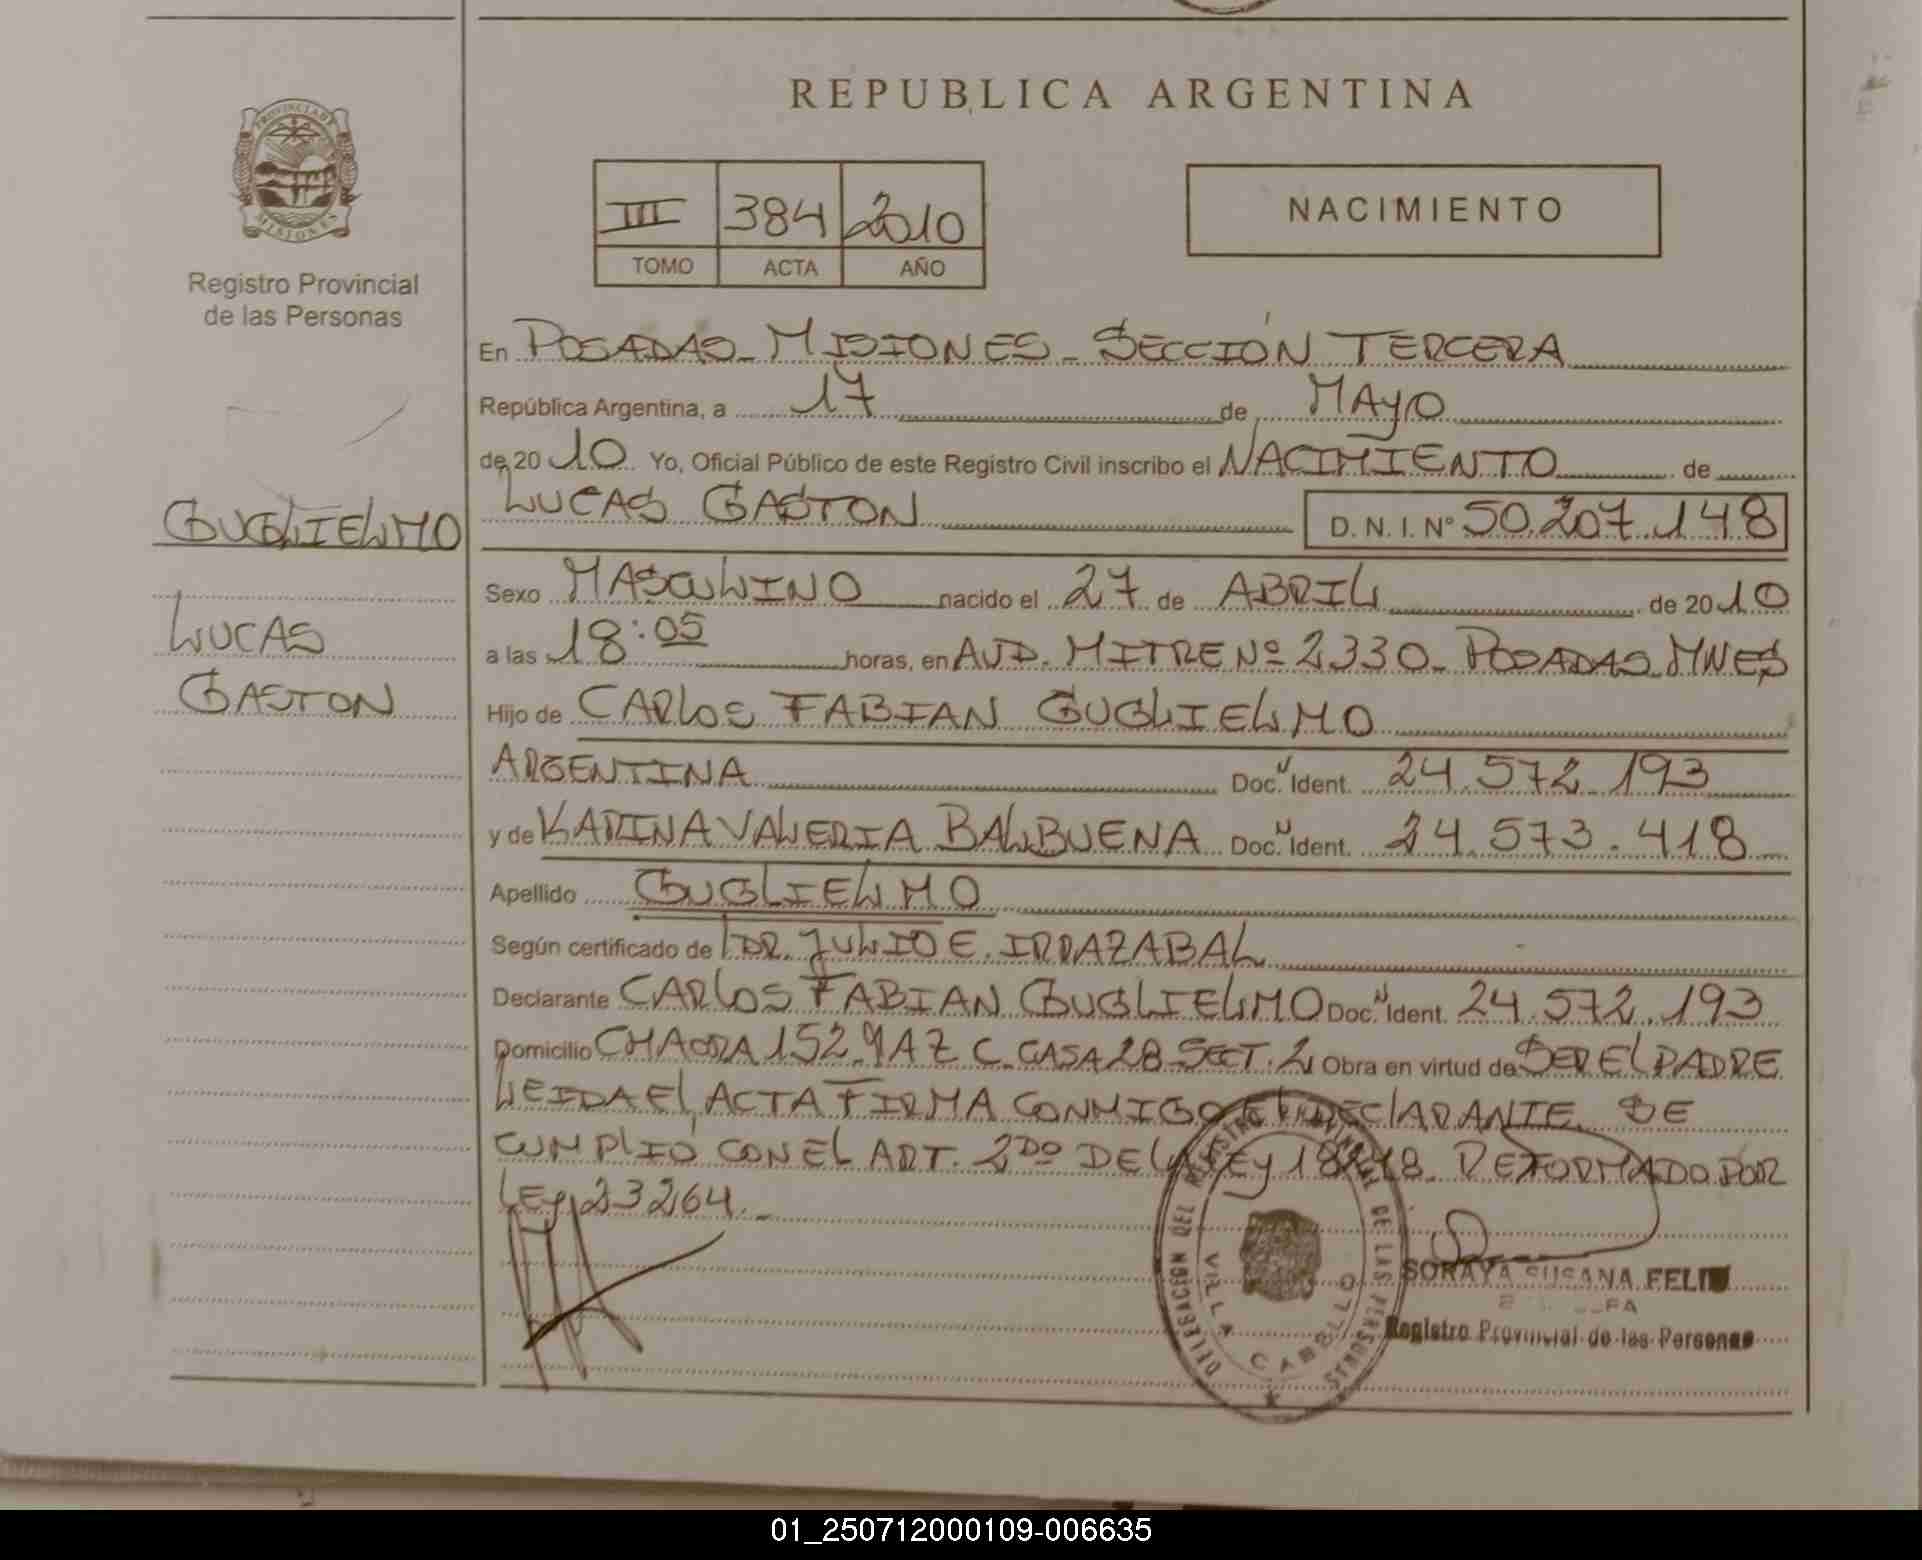 REPUBLICA ARGENTINA
PROVINCIA DE
MISIONES
Registro Provincial
de las Personas
III 384 2010
TOMO ACTA AÑO
NACIMIENTO
En POSADAS - MISIONES - SECCIÓN TERCERA
República Argentina, a 17 de MAYO
de 2010 Yo, Oficial Público de este Registro Civil inscribo el NACIMIENTO de
LUCAS GASTON D. N. I. N° 50.207.148
GUGLIELMO
LUCAS
GASTON
Sexo MASCULINO nacido el 27 de ABRIL de 2010
a las 18:05 horas, en AVD. MITRE Nº 2330 - POSADAS MNES
Hijo de CARLOS FABIAN GUGLIELMO
ARGENTINA Doc. Ident. 24.572.193
y de KARINA VALERIA BALBUENA Doc. Ident. 24.573.418
Apellido GUGLIELMO
Según certificado de DR. JULIO E. IRRAZABAL
Declarante CARLOS FABIAN GUGLIELMO Doc. Ident. 24.572.193
Domicilio CHACRA 152 - 9 A Z C - CASA 28 SECT. 2 Obra en virtud de SER EL PADRE
LEIDA EL ACTA FIRMA CONMIGO EL DECLARANTE. SE
CUMPLIÓ CON EL ART. 2DO DE LA LEY 18248 - REFORMADO POR
LEY 23264. -
DELEGACION DEL REGISTRO PROVINCIAL DE LAS PERSONAS
VILLA CABELLO
SORAYA SUSANA FELIU
Registro Provincial de las Personas
01_250712000109-006635